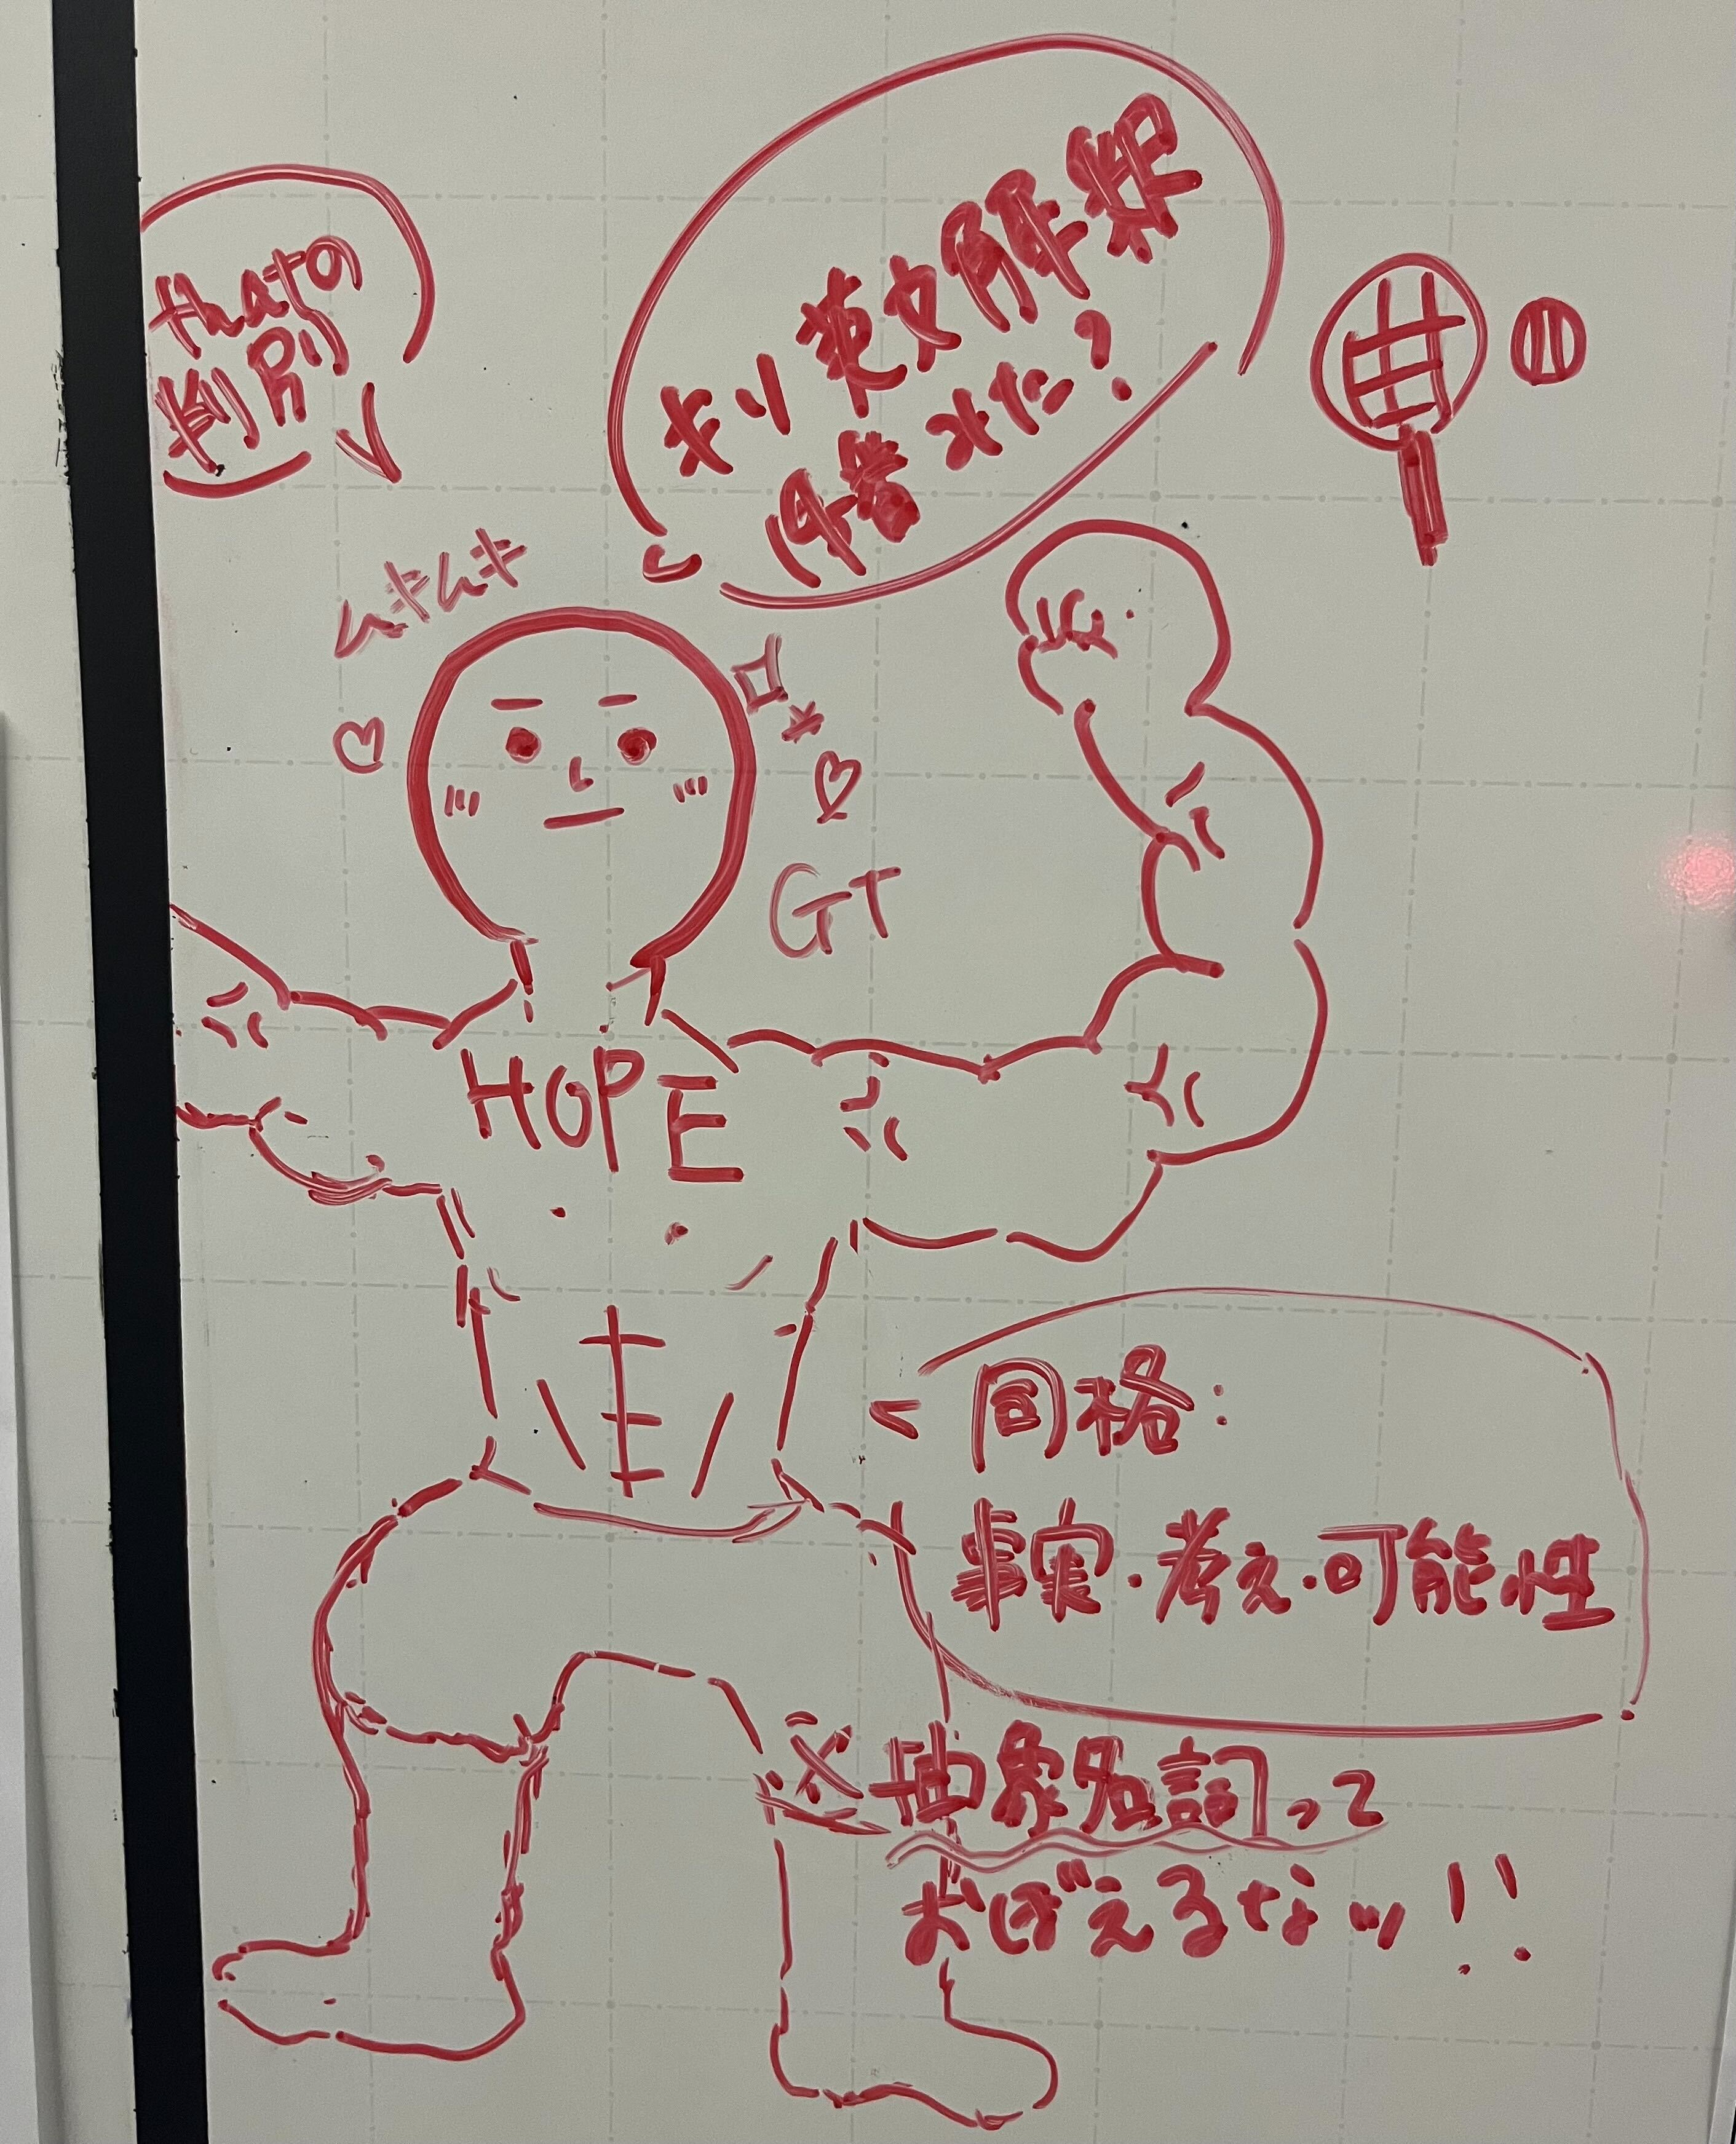 thatの
判別
英文解釈
作者みた?
ムキムキ
GT
HOPE
同格:
事実・考え・可能性
※抽象名詞って
おぼえるなッ!!